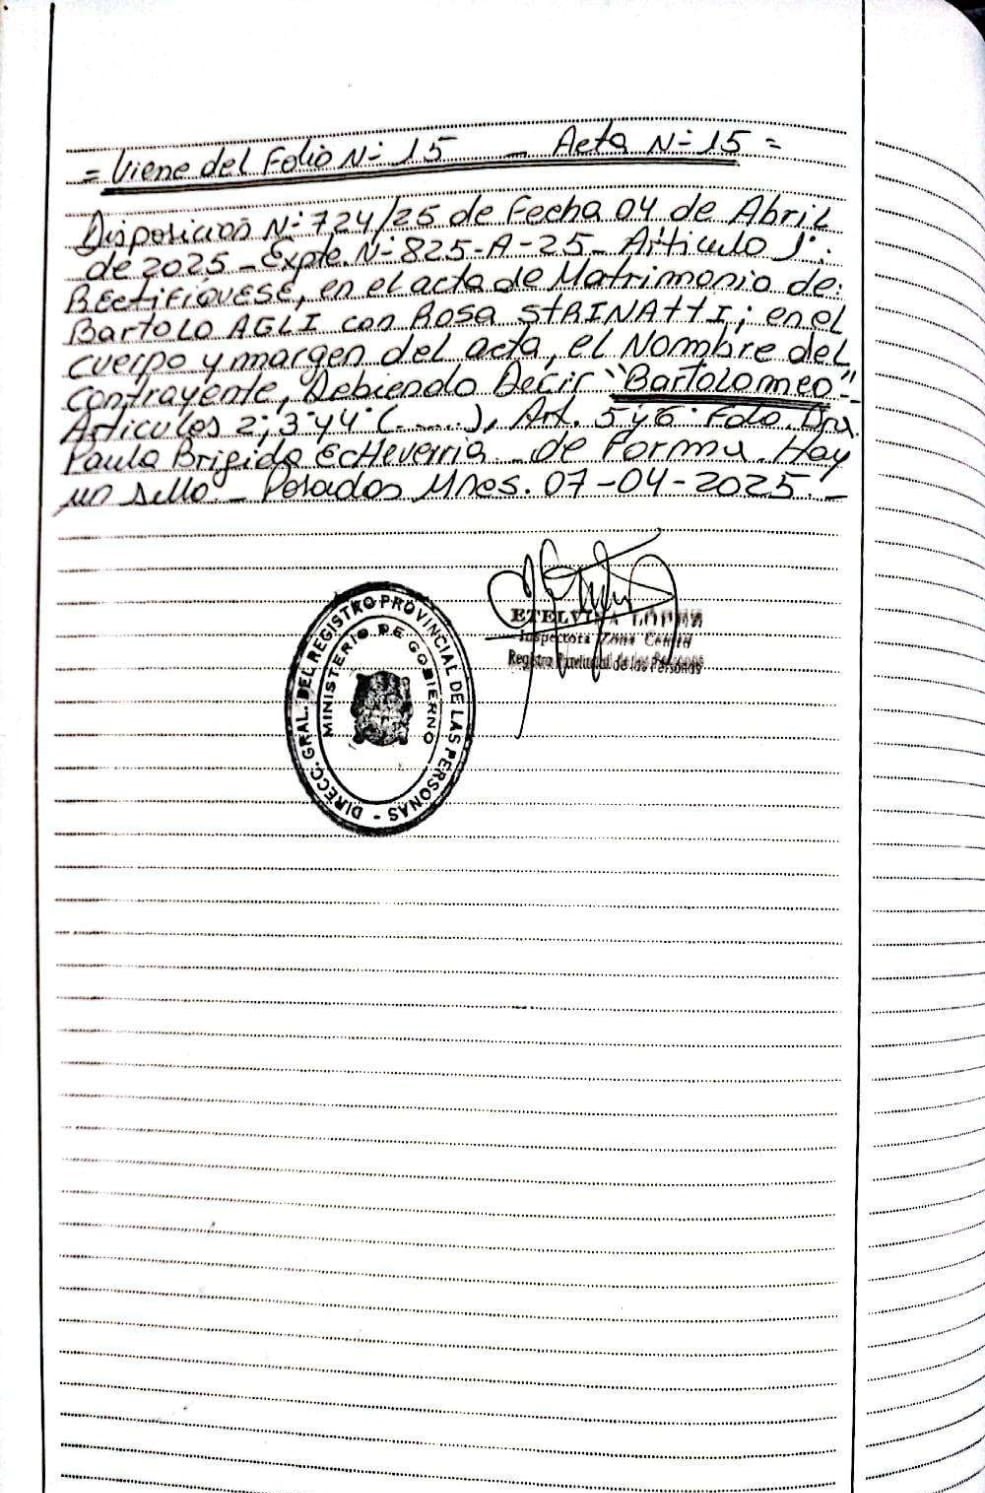 = Viene del Folio N° 15 - Acta N° 15 =
Disposición N° 724/25 de Fecha 04 de Abril
de 2025 - Expte. N° 825-A-25 - Artículo 1°:
RECTIFIQUESE, en el acta de Matrimonio de:
Bartolo AGLI con Rosa STRINATTI; en el
cuerpo y margen del acta, el Nombre del
contrayente, Debiendo Decir "Bartolomeo"-
Artículos 2°, 3° y 4° (.....), Art. 5 y 6° Fdo. Dra.
Paula Brigido Echeverria - de Forma. Hay
un sello - Posadas Mnes. 07-04-2025. -
ETELVINA LOPEZ
Inspectora Zona Centro
Registro Provincial de las Personas
DIRECC. GRAL. DEL REGISTRO PROVINCIAL DE LAS PERSONAS -
MINISTERIO DE GOBIERNO